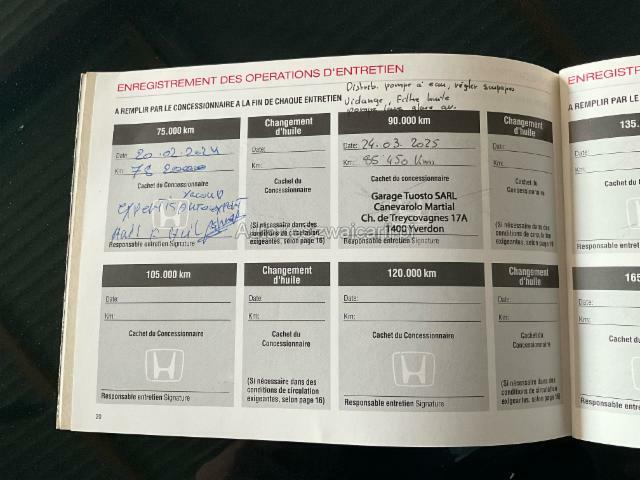 ENREGISTREMENT DES OPERATIONS D'ENTRETIEN
Distrib. pompe à eau, régler soupapes
A REMPLIR PAR LE CONCESSIONNAIRE A LA FIN DE CHAQUE ENTRETIEN
Vidange, Filtre huile
75.000 km
Changement d'huile
90.000 km
Changement d'huile
Date: 20.02.2024
Date:
Date: 24.03.2025
Date:
Km:
Km:
Km: 85 450 Km
Km:
Cachet du Concessionnaire
Cachet du Concessionnaire
Cachet du concessionnaire
Cachet du Concessionnaire
Garage Tuosto SARL
Canevarolo Martial
Ch. de Treycovagnes 17A
1400 Yverdon
(Si nécessaire dans des conditions de circulation exigeantes, selon page 16)
(Si nécessaire dans des conditions de circulation exigeantes, selon page 16)
Responsable entretien Signature
Responsable entretien Signature
105.000 km
Changement d'huile
120.000 km
Changement d'huile
Date:
Date:
Date:
Date:
Km:
Km:
Km:
Km:
Cachet du Concessionnaire
Cachet du Concessionnaire
Cachet du Concessionnaire
Cachet du Concessionnaire
(Si nécessaire dans des conditions de circulation exigeantes, selon page 16)
(Si nécessaire dans des conditions de circulation exigeantes, selon page 16)
Responsable entretien Signature
Responsable entretien Signature
20
ENREGISTR
A REMPLIR PAR LE
135.
Date:
Km:
Responsable entre
165
Date:
Km:
Responsable entret